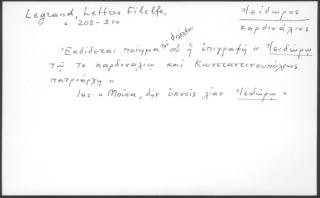 Legrand, Lettres Filelfe,
σ. 208-210
Ἰσίδωρος
καρδινάλιος
Ἐκδίδεται ποίημα τοῦ Φιλέλφου οὗ ἡ ἐπιγραφὴ "Ἰσιδώρῳ
τῷ τε καρδιναλίῳ καὶ Κωνσταντινουπόλεως
πατριάρχῃ"
"Μοῦσα, δὴν ὀκνεῖς λίαν Ἰσιδώρῳ"